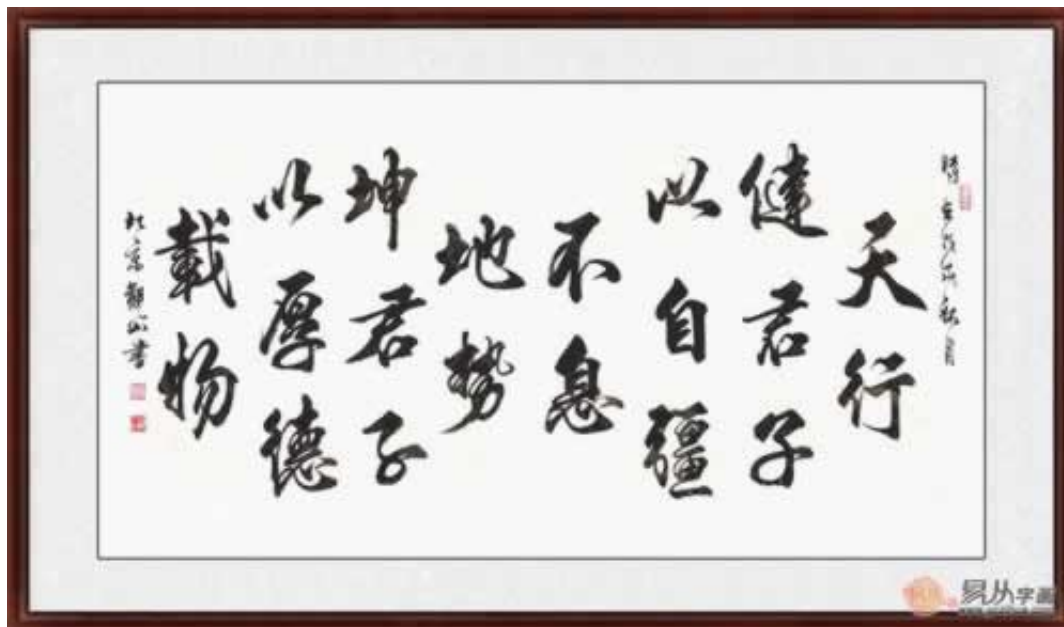 天行
健君子
以自彊
不息
地势
坤君子
以厚德
載物
易从字画